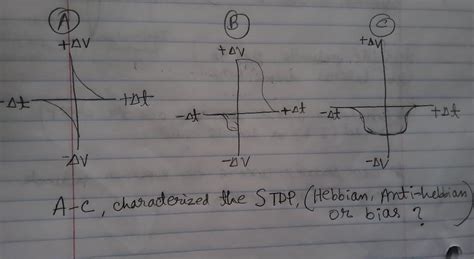 A B C
+ΔV +ΔV +ΔV
-Δt +Δt -Δt +Δt -Δt +Δt
-ΔV -ΔV -ΔV
A-C, characterized the STDP, (Hebbian, Anti-hebbian
or bias ?